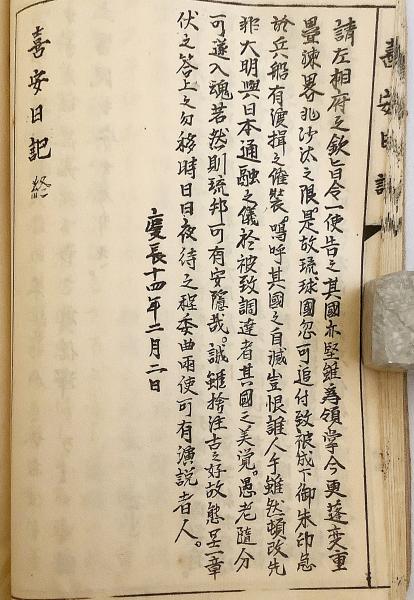 喜安日記
請左相府之欽旨令一使告之其國亦堅雖為領掌今更蓬変重
疊疎畧非沙汰之限是故琉球國忽可追付致被成下御朱印急
於兵船有渡揖之催裝。嗚呼其國之自滅豈恨誰人乎雖然頓改先
非大明與日本通融之儀於被致調達者其國之美覚。愚老隨分
可遂入魂若然則琉邦可有安隱哉。誠雖捨注古之好故態呈一章
伏之答上之勿移時日日夜待之程委曲両使可有演説者人。
慶長十四年二月二日
喜安日記 終